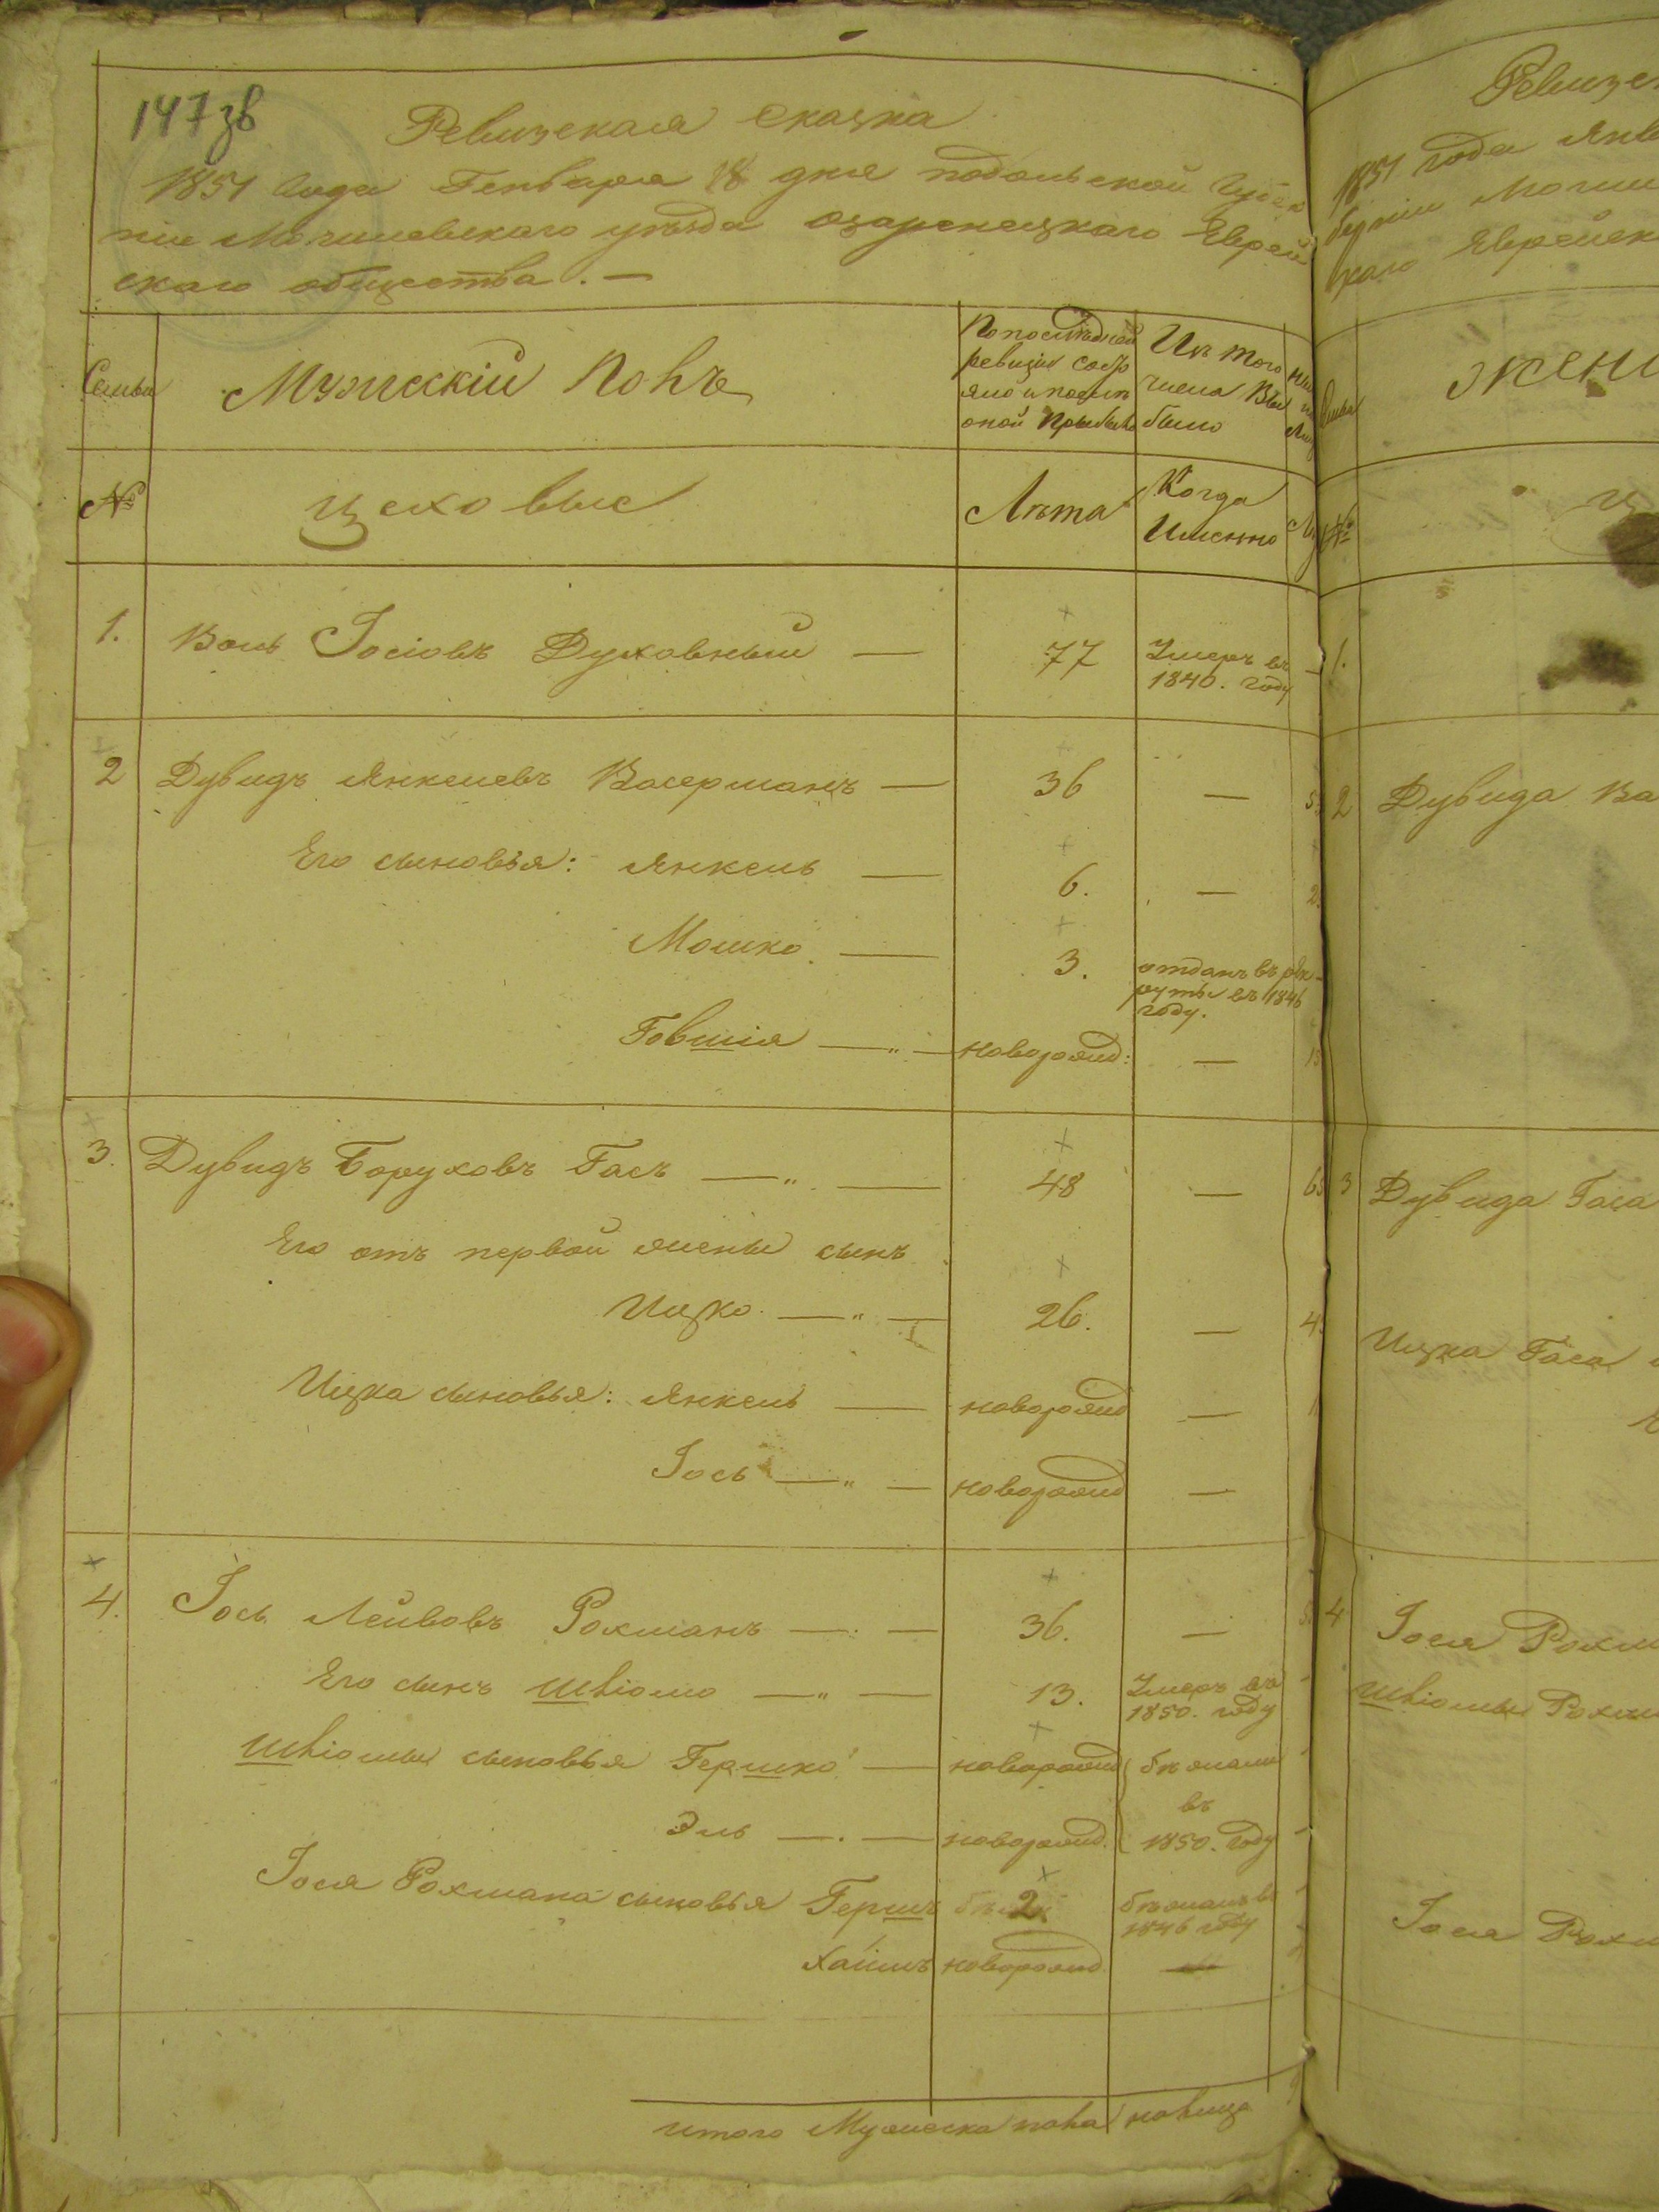 147 зв
Ревизская сказка
1851 года Генваря 18 дня подольской Губер
ніи Могилевскаго уѣзда Озаренецкаго Еврей
скаго общества. —
Семьи
Мужескій Полъ
По последней
ревизіи состо
яло и после
оной Прибыло
Изъ того
числа Вы
было
№
Цеховые
Лѣта
Когда
Именно
1. Воль Іосіовъ Духовный — 77 Умеръ въ
1840. году
2 Дувидъ Янкелевъ Васерманъ — 36 —
Его сыновья: Янкель — 6. —
Мошко — 3. отданъ въ рек-
руты въ 1846
году.
Говшія — " — новорожд: —
3. Дувидъ Боруховъ Гасъ — " — 48 —
Его отъ первой жены сынъ
Ицко — " — 26. —
Ицка сыновья: Янкель — новорожд —
Іось — " — новорожд —
4. Іось Лейбовъ Рохманъ — . — 36. —
Его сынъ Шліомо — " — 13. Умеръ въ
1850. году
Шліомы сыновья Гершко — новорожд бѣжали
въ
Эль — . — новорожд. 1850. году
Іося Рохмана сыновья Гершъ 2 бѣжалъ въ
1846 году
Хаимъ новорожд —
итого Мужеска пола налицо
Ревизс
1851 года Янв
берніи Могил
скаго Еврейск
Семьи
Жен
№
Ц
1.
2 Дувида Ва
3 Дувида Гаса
Ицка Гаса
4 Іося Рохм
Шліомы Рохм
Іося Рохм